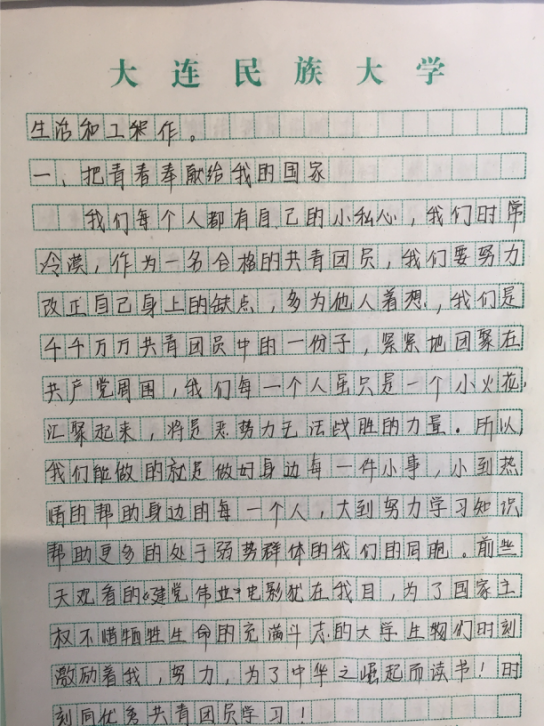 大连民族大学
生活和工作。
一、把青春奉献给我的国家
我们每个人都有自己的小私心,我们时常
冷漠,作为一名合格的共青团员,我们要努力
改正自己身上的缺点,多为他人着想,我们是
千千万万共青团员中的一份子,紧紧地团聚在
共产党周围,我们每一个人虽只是一个小火花,
汇聚起来,将是恶势力无法战胜的力量。所以
我们能做的就是做好身边每一件小事,小到热
情的帮助身边的每一个人,大到努力学习知识
帮助更多的处于弱势群体的我们的同胞。前些
天观看的《建党伟业》电影犹在我目,为了国家主
权不惜牺牲生命的充满斗志的大学生物们时刻
激励着我,努力,为了中华之崛起而读书!时
刻向优秀共青团员学习!